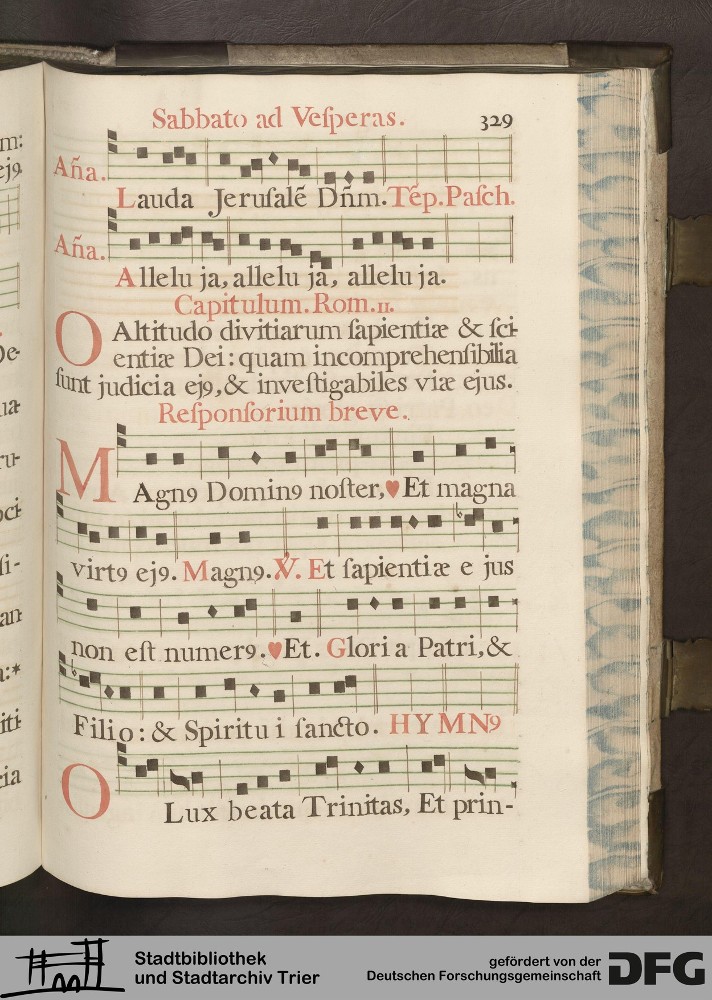 Sabbato ad Veſperas. 329
Aña.
Lauda Jeruſalẽ Dñm. Tẽp. Paſch.
Aña.
Allelu ja, allelu ja, allelu ja.
Capitulum. Rom. II.
O Altitudo divitiarum ſapientiæ & ſci-
entiæ Dei: quam incomprehenſibilia
ſunt judicia ejꝰ, & inveſtigabiles viæ ejus.
Reſponſorium breve.
MAgnꝰ Dominꝰ noſter, ♥ Et magna
virtꝰ ejꝰ. Magnꝰ. ℣. Et ſapientiæ e jus
non eſt numerꝰ. ♥ Et. Glori a Patri, &
Filio: & Spiritu i ſancto. HYMNꝰ
O Lux beata Trinitas, Et prin-
Stadtbibliothek
und Stadtarchiv Trier
gefördert von der
Deutschen Forschungsgemeinschaft
DFG